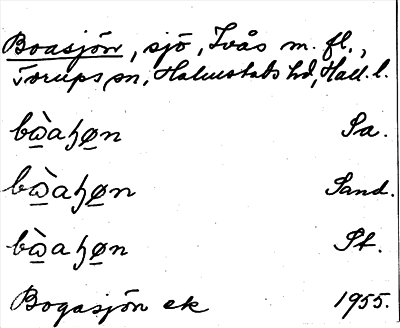 Boasjön, sjö, Tvås m. fl.,
Torups sn, Halmstads hd, Hall. l.
bὼaɧøn Sa.
bὼaɧøn Sand.
bὼaɧøn St.
Bogasjön ek 1955.